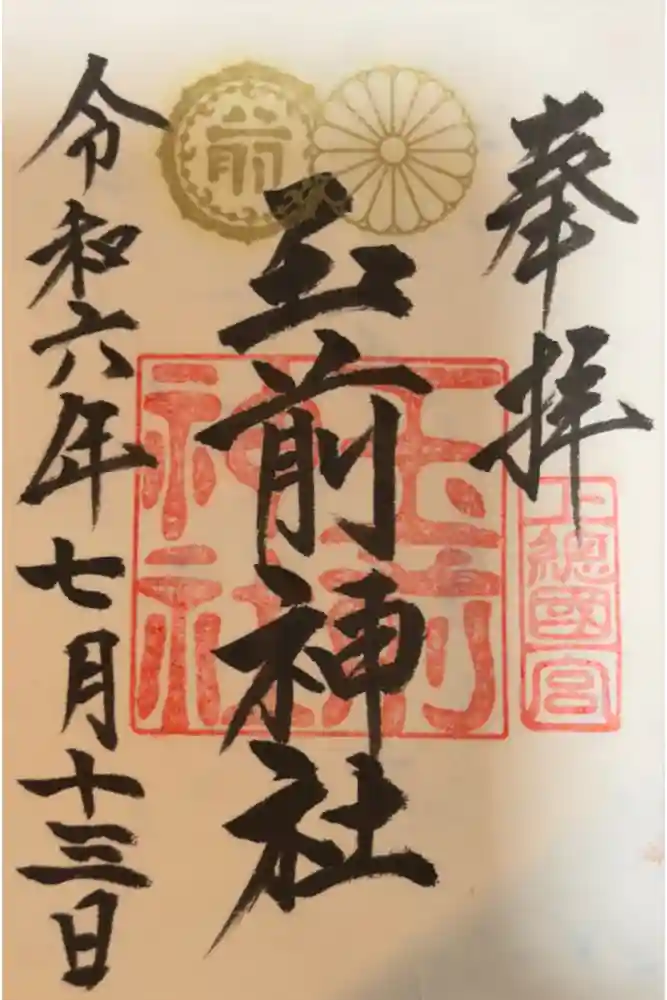 奉拝
上總國一宮
前
玉前神社
玉前神社
令和六年七月十三日